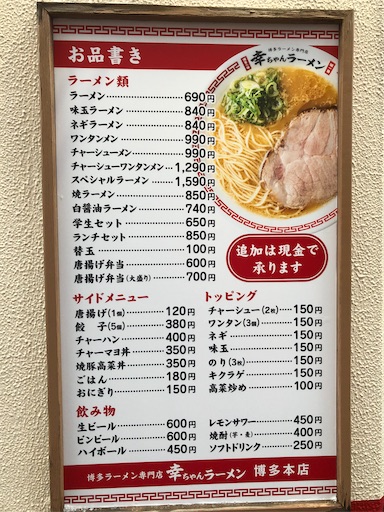 お品書き
博多ラーメン専門店
幸ちゃんラーメン
ラーメン類
ラーメン 690円
味玉ラーメン 840円
ネギラーメン 840円
ワンタンメン 990円
チャーシューメン 990円
チャーシューワンタンメン 1,290円
スペシャルラーメン 1,590円
焼ラーメン 850円
白醤油ラーメン 740円
学生セット 650円
ランチセット 850円
替玉 100円
唐揚げ弁当 600円
唐揚げ弁当(大盛り) 700円
追加は現金で
承ります
サイドメニュー
唐揚げ(1個) 120円
餃子(5個) 380円
チャーハン 400円
チャーマヨ丼 350円
焼豚高菜丼 350円
ごはん 180円
おにぎり 150円
トッピング
チャーシュー(2枚) 150円
ワンタン(3個) 150円
ネギ 150円
味玉 150円
のり(3枚) 150円
キクラゲ 150円
高菜炒め 100円
飲み物
生ビール 600円
ビンビール 600円
ハイボール 450円
レモンサワー 450円
焼酎(芋・麦) 400円
ソフトドリンク 250円
博多ラーメン専門店 幸ちゃんラーメン 博多本店